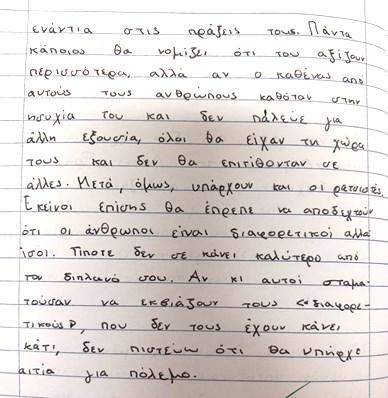 ενάντια στις πράξεις τους. Πάντα
κάποιος θα νομίζει ότι του αξίζουν
περισσότερα, αλλά αν ο καθένας από
αυτούς τους ανθρώπους καθόταν στην
ησυχία του και δεν πάλευε για
άλλη εξουσία, όλοι θα είχαν τη χώρα
τους και δεν θα επιτίθονταν σε
άλλες. Μετά, όμως, υπάρχουν και οι ρατσιστές
Εκείνοι επίσης θα έπρεπε να αποδεχτούν
ότι οι άνθρωποι είναι διαφορετικοί αλλά
ίσοι. Τίποτε δεν σε κάνει καλύτερο από
τον διπλανό σου. Αν κι αυτοί σταμα-
τούσαν να εκβιάζουν τους «διαφορε-
τικούς», που δεν τους έχουν κάνει
κάτι, δεν πιστεύω ότι θα υπήρχε
αιτία για πόλεμο.